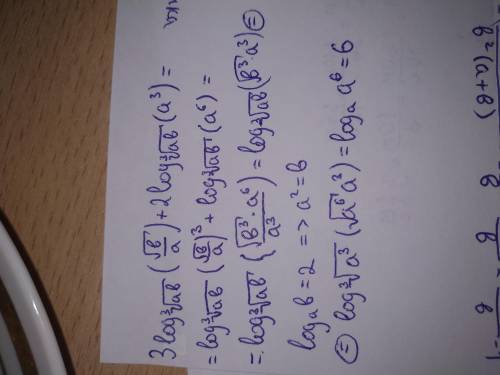 3log∛ab (√b/a) + 2log∛ab (a³) =
= log∛ab (√b/a)³ + log∛ab (a⁶) =
= log∛ab (√b³ · a⁶/a³) = log∛ab (√b³ · a³) ⊜
logₐ b = 2 => a² = b
⊜ log∛a³ (√a⁶ a³) = logₐ a⁶ = 6
b² (a+b)